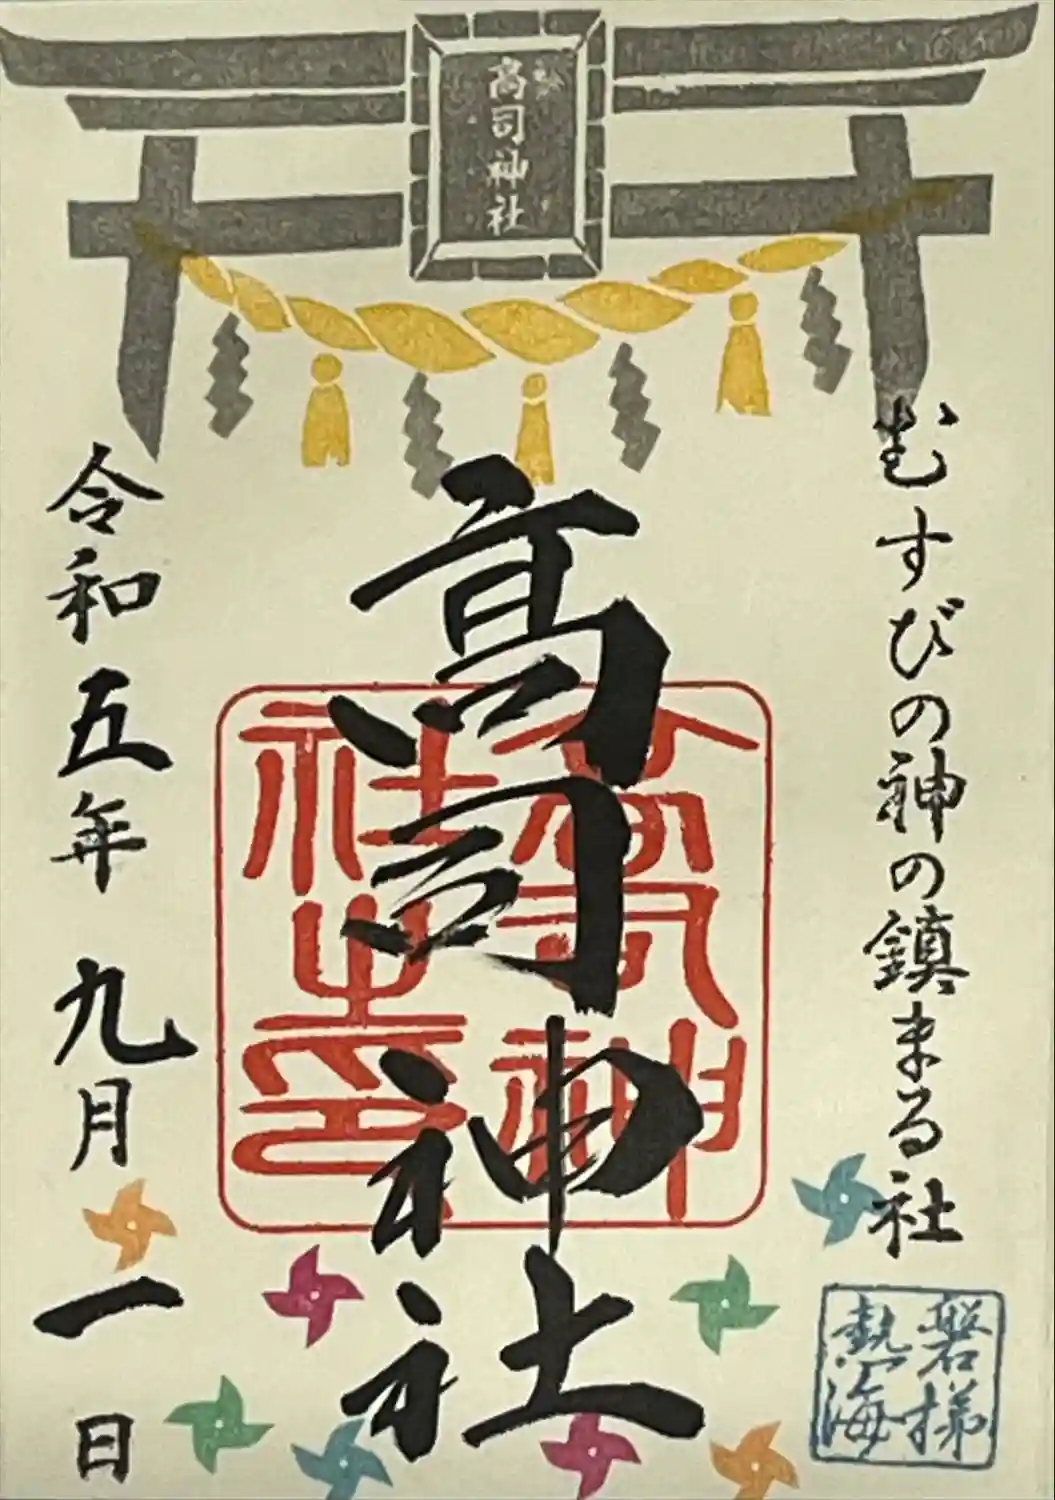 高司神社
むすびの神の鎮まる社
高司神社
高司神社之印
令和五年 九月 一日
磐梯
熱海